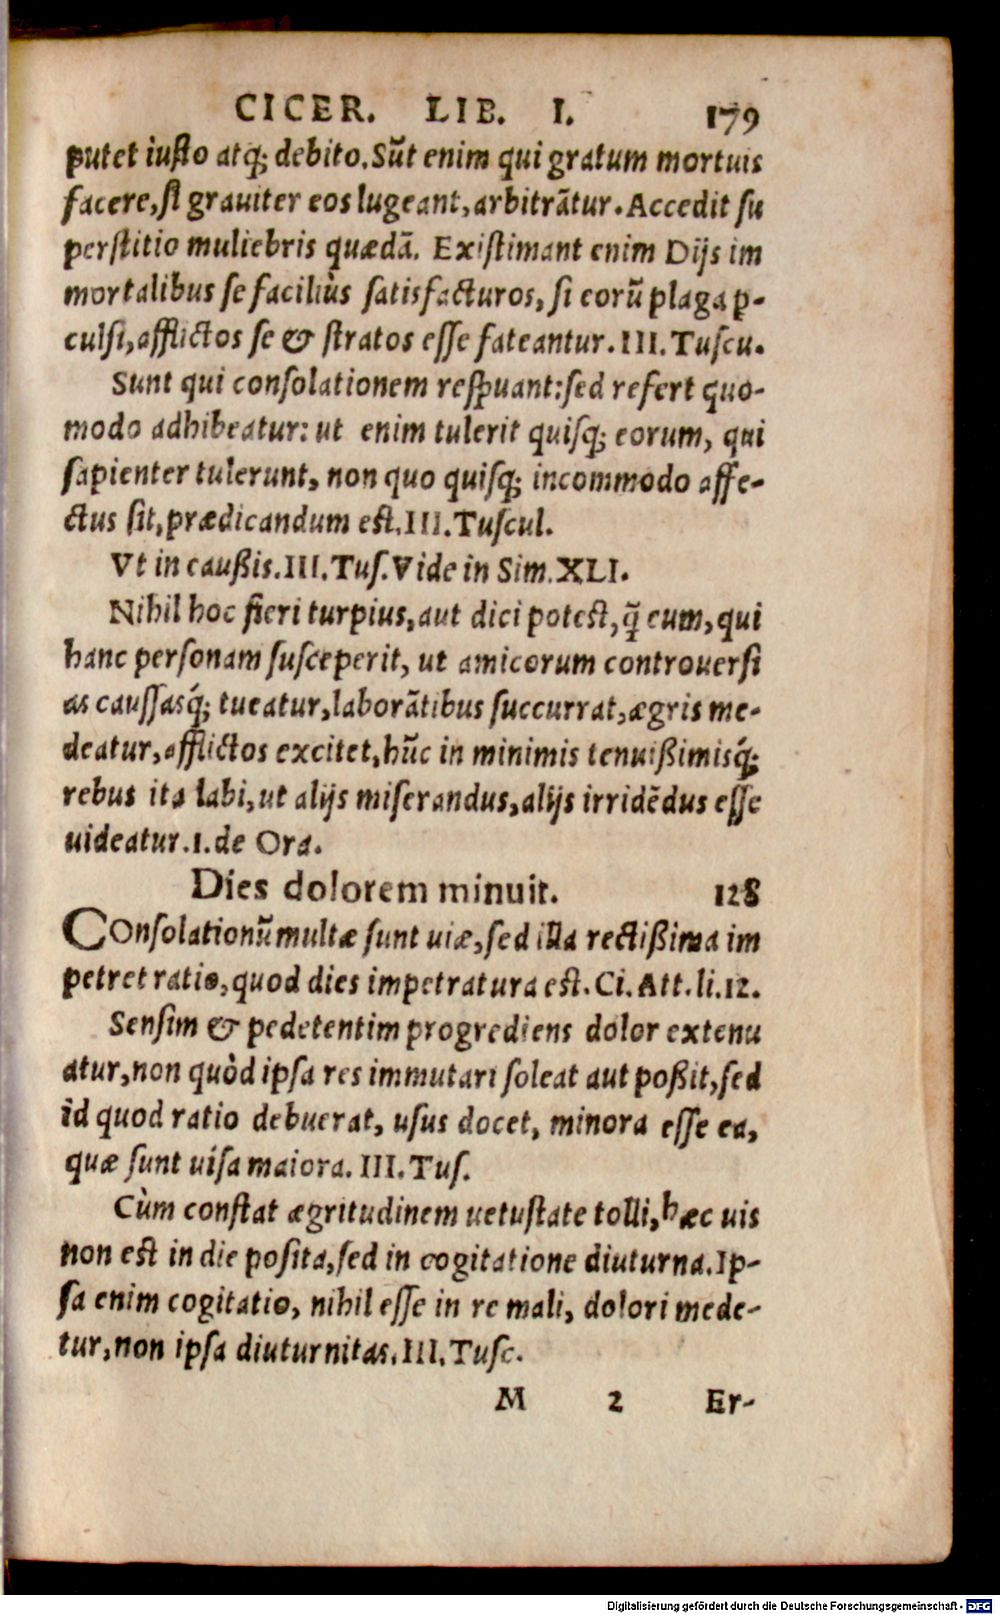 CICER. LIB. I. 179
putet iusto atq; debito. Sũt enim qui gratum mortuis
facere, si grauiter eos lugeant, arbitrãtur. Accedit su
perstitio muliebris quædã. Existimant enim Dijs im
mortalibus se faciliùs satisfacturos, si eorũ plaga ꝑ-
culsi, afflictos se & stratos esse fateantur. III. Tuscu.
Sunt qui consolationem respuant: sed refert quo-
modo adhibeatur: ut enim tulerit quisq; eorum, qui
sapienter tulerunt, non quo quisq; incommodo affe-
ctus sit, prædicandum est. III. Tuscul.
Vt in caußis. III. Tus. Vide in Sim. XLI.
Nihil hoc fieri turpius, aut dici potest, q̃ eum, qui
hanc personam susceperit, ut amicorum controuersi
as caussasq́; tueatur, laborãtibus succurrat, ægris me-
deatur, afflictos excitet, hũc in minimis tenuißimisq́;
rebus ita labi, ut alijs miserandus, alijs irridẽdus esse
uideatur. 1. de Ora.
Dies dolorem minuit. 128
COnsolationũ multæ sunt uiæ, sed illa rectißima im
petret ratio, quod dies impetratura est. Ci. Att. li. 12.
Sensim & pedetentim progrediens dolor extenu
atur, non quòd ipsa res immutari soleat aut poßit, sed
id quod ratio debuerat, usus docet, minora esse ea,
quæ sunt uisa maiora. III. Tus.
Cùm constat ægritudinem uetustate tolli, hæc uis
non est in die posita, sed in cogitatione diuturna. Ip-
sa enim cogitatio, nihil esse in re mali, dolori mede-
tur, non ipsa diuturnitas. III. Tusc.
M 2 Er-
Digitalisierung gefördert durch die Deutsche Forschungsgemeinschaft - DFG